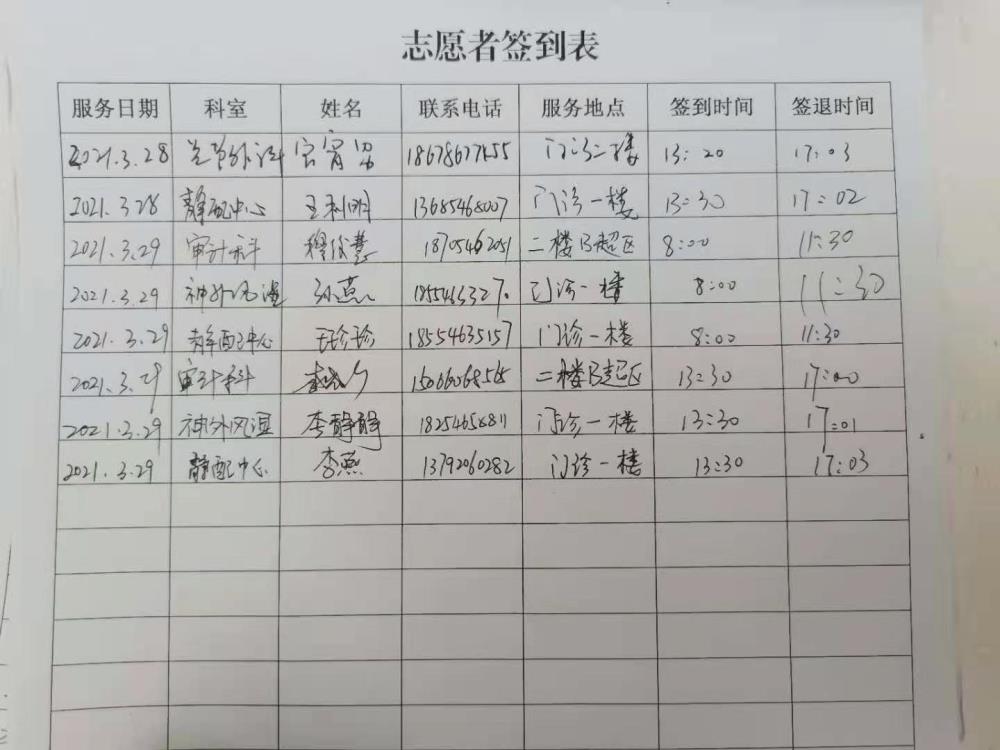 志愿者签到表
服务日期 科室 姓名 联系电话 服务地点 签到时间 签退时间
2021.3.28 13:20 17:03
2021.3.28 静配中心 王利明 13685468007 门诊一楼 13:30 17:02
2021.3.29 审计科 穆俊慧 18705462051 二楼B超区 8:00 11:30
2021.3.29 神外风湿 孙燕 门诊一楼 8:00 11:30
2021.3.29 静配中心 王珍珍 18554635157 门诊一楼 8:00 11:30
2021.3.29 审计科 二楼B超区 13:30 17:00
2021.3.29 神外风湿 李静静 18254656811 门诊一楼 13:30 17:01
2021.3.29 静配中心 李燕 13792060282 门诊一楼 13:30 17:03